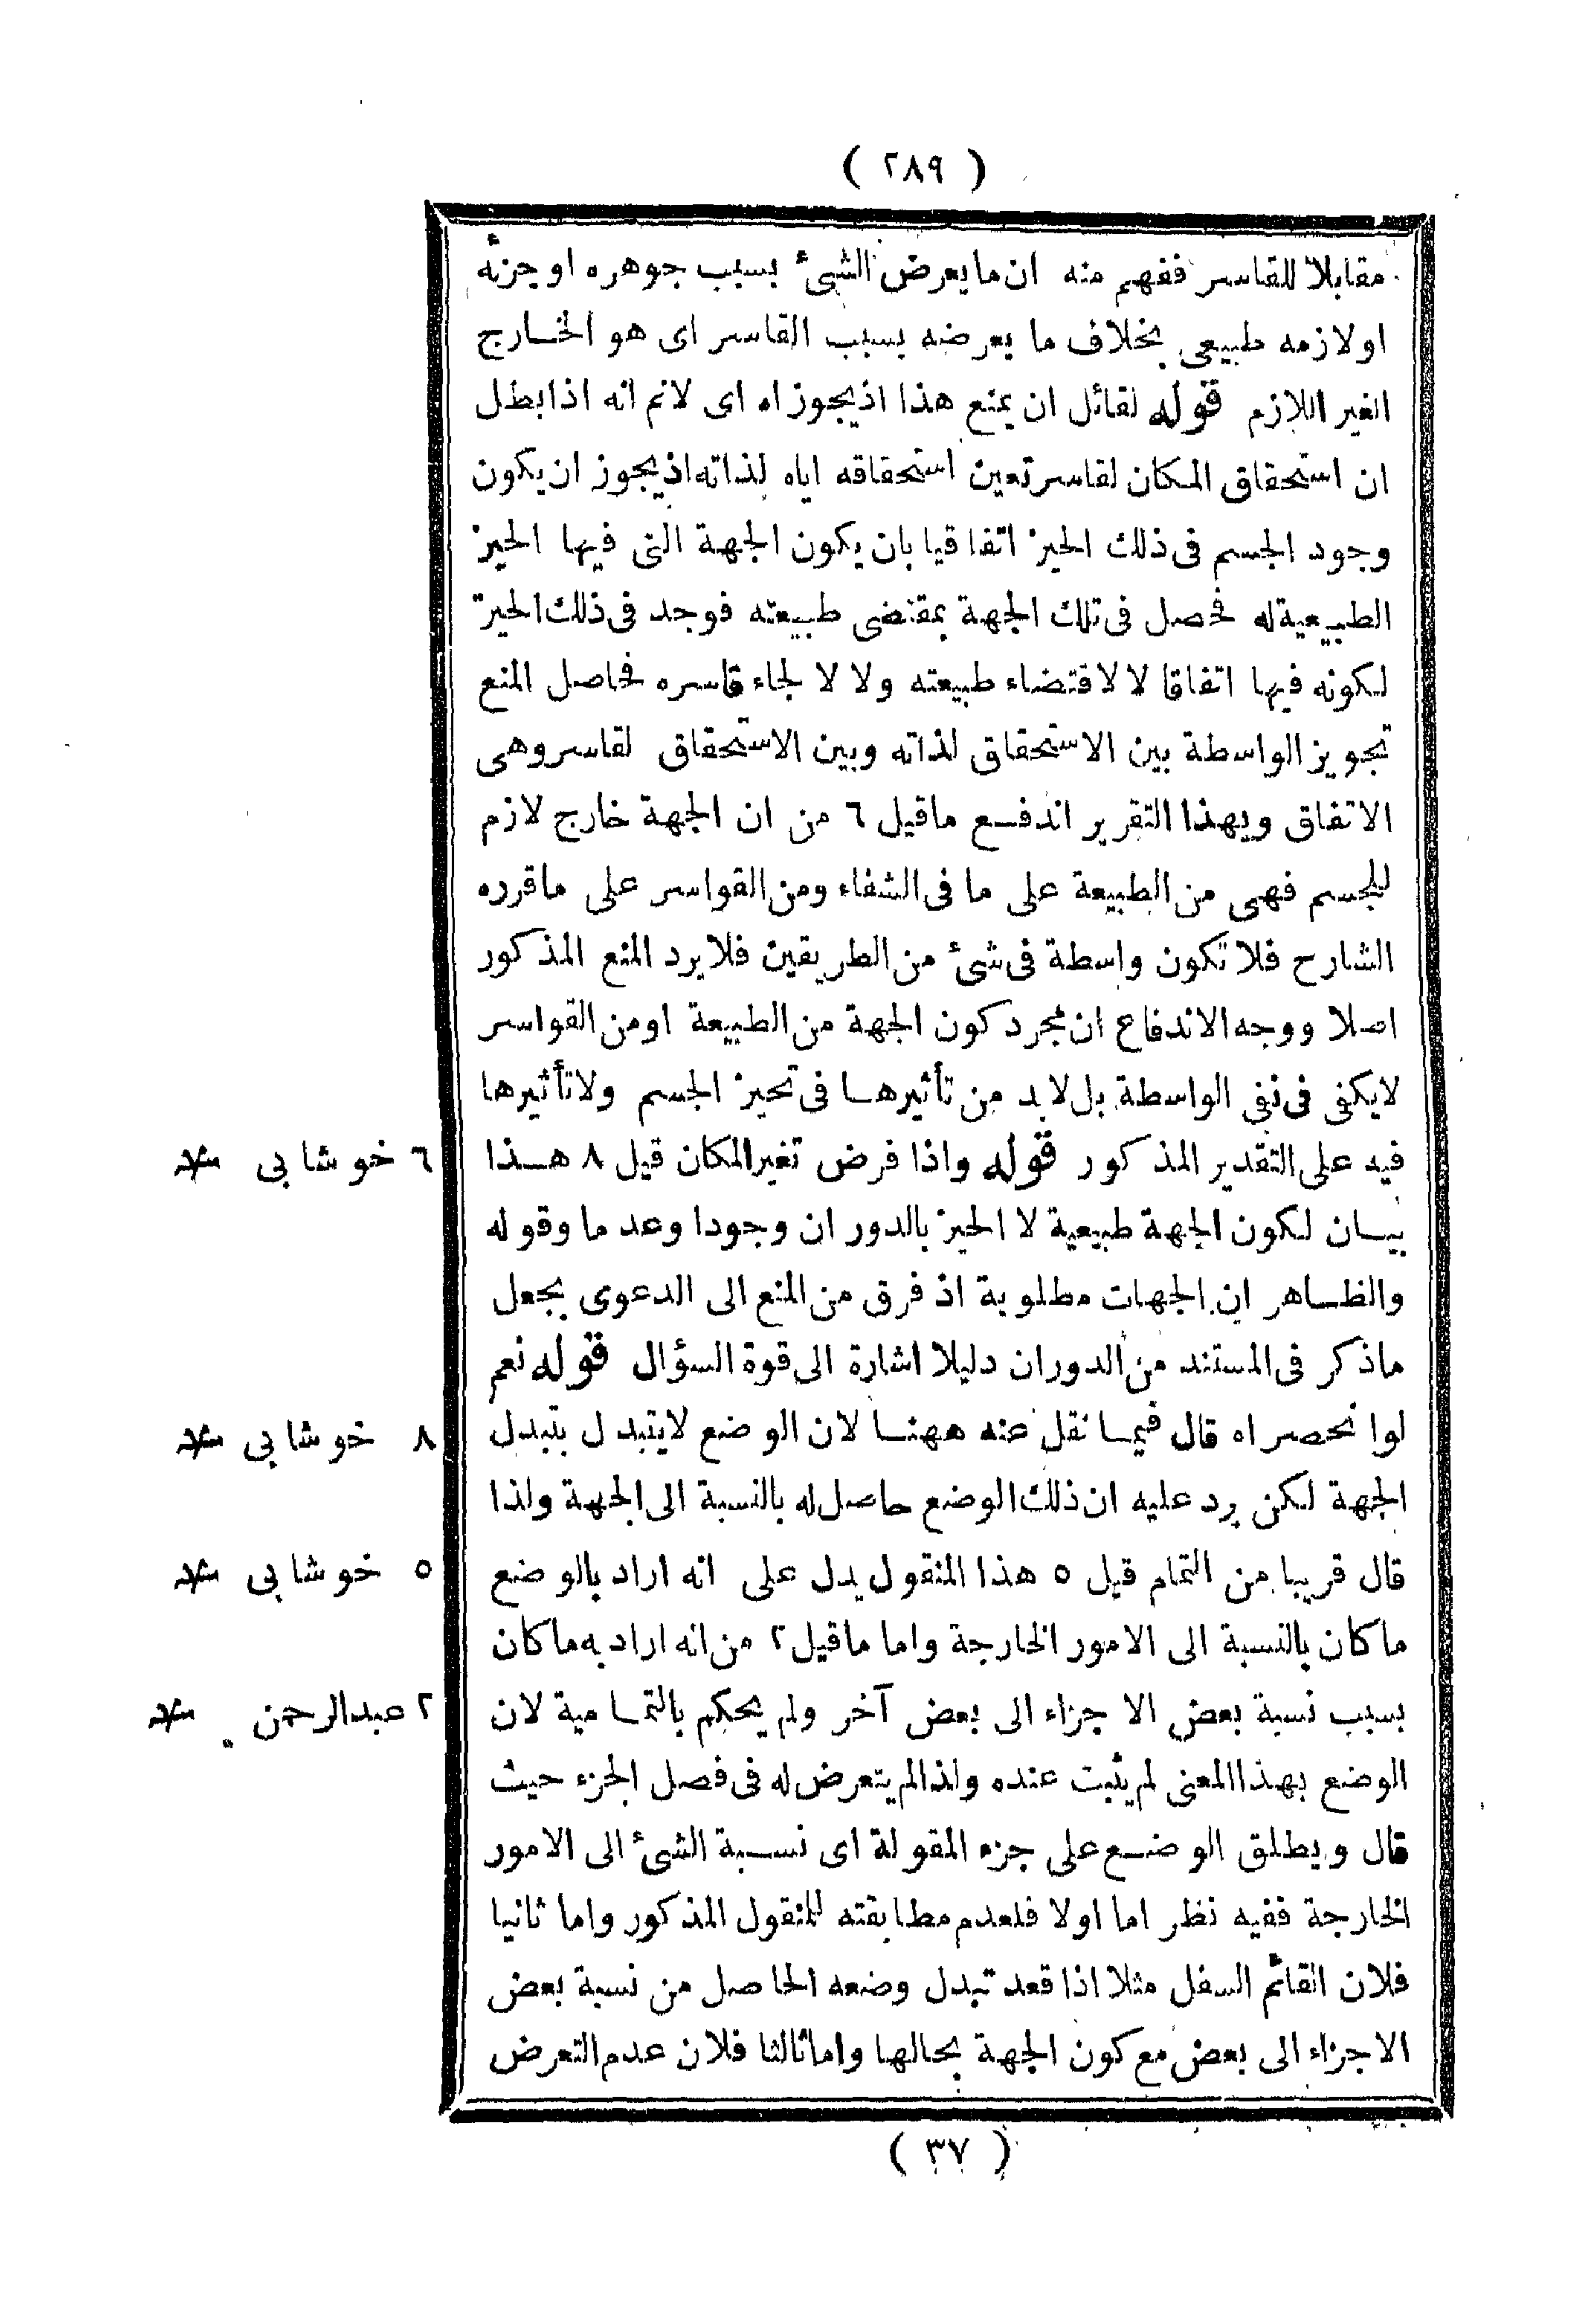 ( ٢٨٩ )
مقابلا للقاسر ففهم منه ان ما يعرض الشئ بسبب جوهره او جزئه
او لازمه طبيعى بخلاف ما يعرضه بسبب القاسر اى هو الخارج
الغير اللازم قوله لقائل ان يمنع هذا اذ يجوز اه اى لانم انه اذا بطل
ان استحقاق المكان لقاسر تعين استحقاقه اياه لذاته اذ يجوز ان يكون
وجود الجسم فى ذلك الحيز اتفاقيا بان يكون الجهة التى فيها الحيز
الطبيعية له فحصل فى تلك الجهة بمقتضى طبيعته فوجد فى ذلك الحيز
لكونه فيها اتفاقا لا لاقتضاء طبيعته ولا لالجاء قاسره فحاصل المنع
تجويز الواسطة بين الاستحقاق لذاته وبين الاستحقاق لقاسر وهى
الاتفاق وبهذا التقرير اندفع ماقيل ٦ من ان الجهة خارج لازم
للجسم فهى من الطبيعة على ما فى الشفاء ومن القواسر على ماقرره
الشارح فلا تكون واسطة فى شئ من الطريقين فلا يرد المنع المذكور
اصلا ووجه الاندفاع ان مجرد كون الجهة من الطبيعة او من القواسر
لايكفى فى نفى الواسطة بل لابد من تأثيرها فى تحيز الجسم ولا تأثيرها
فيه على التقدير المذكور قوله واذا فرض تغير المكان قيل ٨ هذا
٦ خوشابى
بيان لكون الجهة طبيعية لا الحيز بالدوران وجودا وعدما وقوله
والظاهر ان الجهات مطلوبة اذ فرق من المنع الى الدعوى بجعل
ماذكر فى المستند من الدوران دليلا اشارة الى قوة السؤال قوله نعم
لو انحصر اه قال فيما نقل عنه ههنا لان الوضع لايتبدل بتبدل
٨ خوشابى
الجهة لكن يرد عليه ان ذلك الوضع حاصل له بالنسبة الى الجهة ولذا
قال قريبا من التمام قيل ٥ هذا المنقول يدل على انه اراد بالوضع
٥ خوشابى
ماكان بالنسبة الى الامور الخارجة واما ماقيل ٢ من انه اراد به ماكان
بسبب نسبة بعض الاجزاء الى بعض آخر ولم يحكم بالتمامية لان
٢ عبدالرحمن
الوضع بهذا المعنى لم يثبت عنده ولذا لم يتعرض له فى فصل الجزء حيث
قال ويطلق الوضع على جزء المقولة اى نسبة الشئ الى الامور
الخارجة ففيه نظر اما اولا فلعدم مطابقته للمنقول المذكور واما ثانيا
فلان القائم السفل مثلا اذا قعد تبدل وضعه الحاصل من نسبة بعض
الاجزاء الى بعض مع كون الجهة بحالها واما ثالثا فلان عدم التعرض
( ٣٧ )